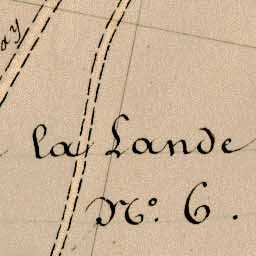 ay
la Lande
N.º 6.